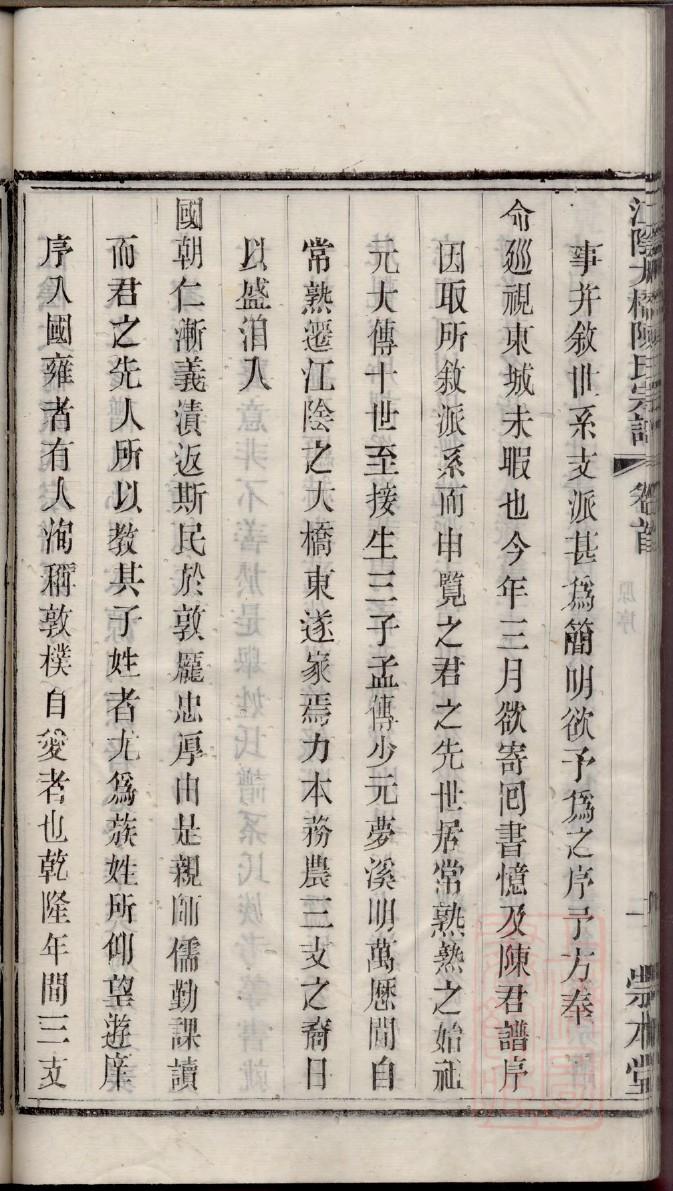 江陰大橋陳氏宗譜 卷首 原序 崇本堂
事并敘世系支派甚爲簡明欲予爲之序予方奉
命廵視東城未暇也今年三月欲寄囘書憶及陳君譜序
因取所敘派系而申覽之君之先世居常熟熟之始祖
元大傳十世至接生三子孟傳少元夢溪明萬厯間自
常熟遷江陰之大橋東遂家焉力本務農三支之裔日
以盛洎入
國朝仁漸義漬返斯民於敦龐忠厚由是親師儒勤課讀
而君之先人所以教其子姓者尤爲蔟姓所仰望遊庠
序入國雍者有人洵稱敦樸自愛者也乾隆年間三支